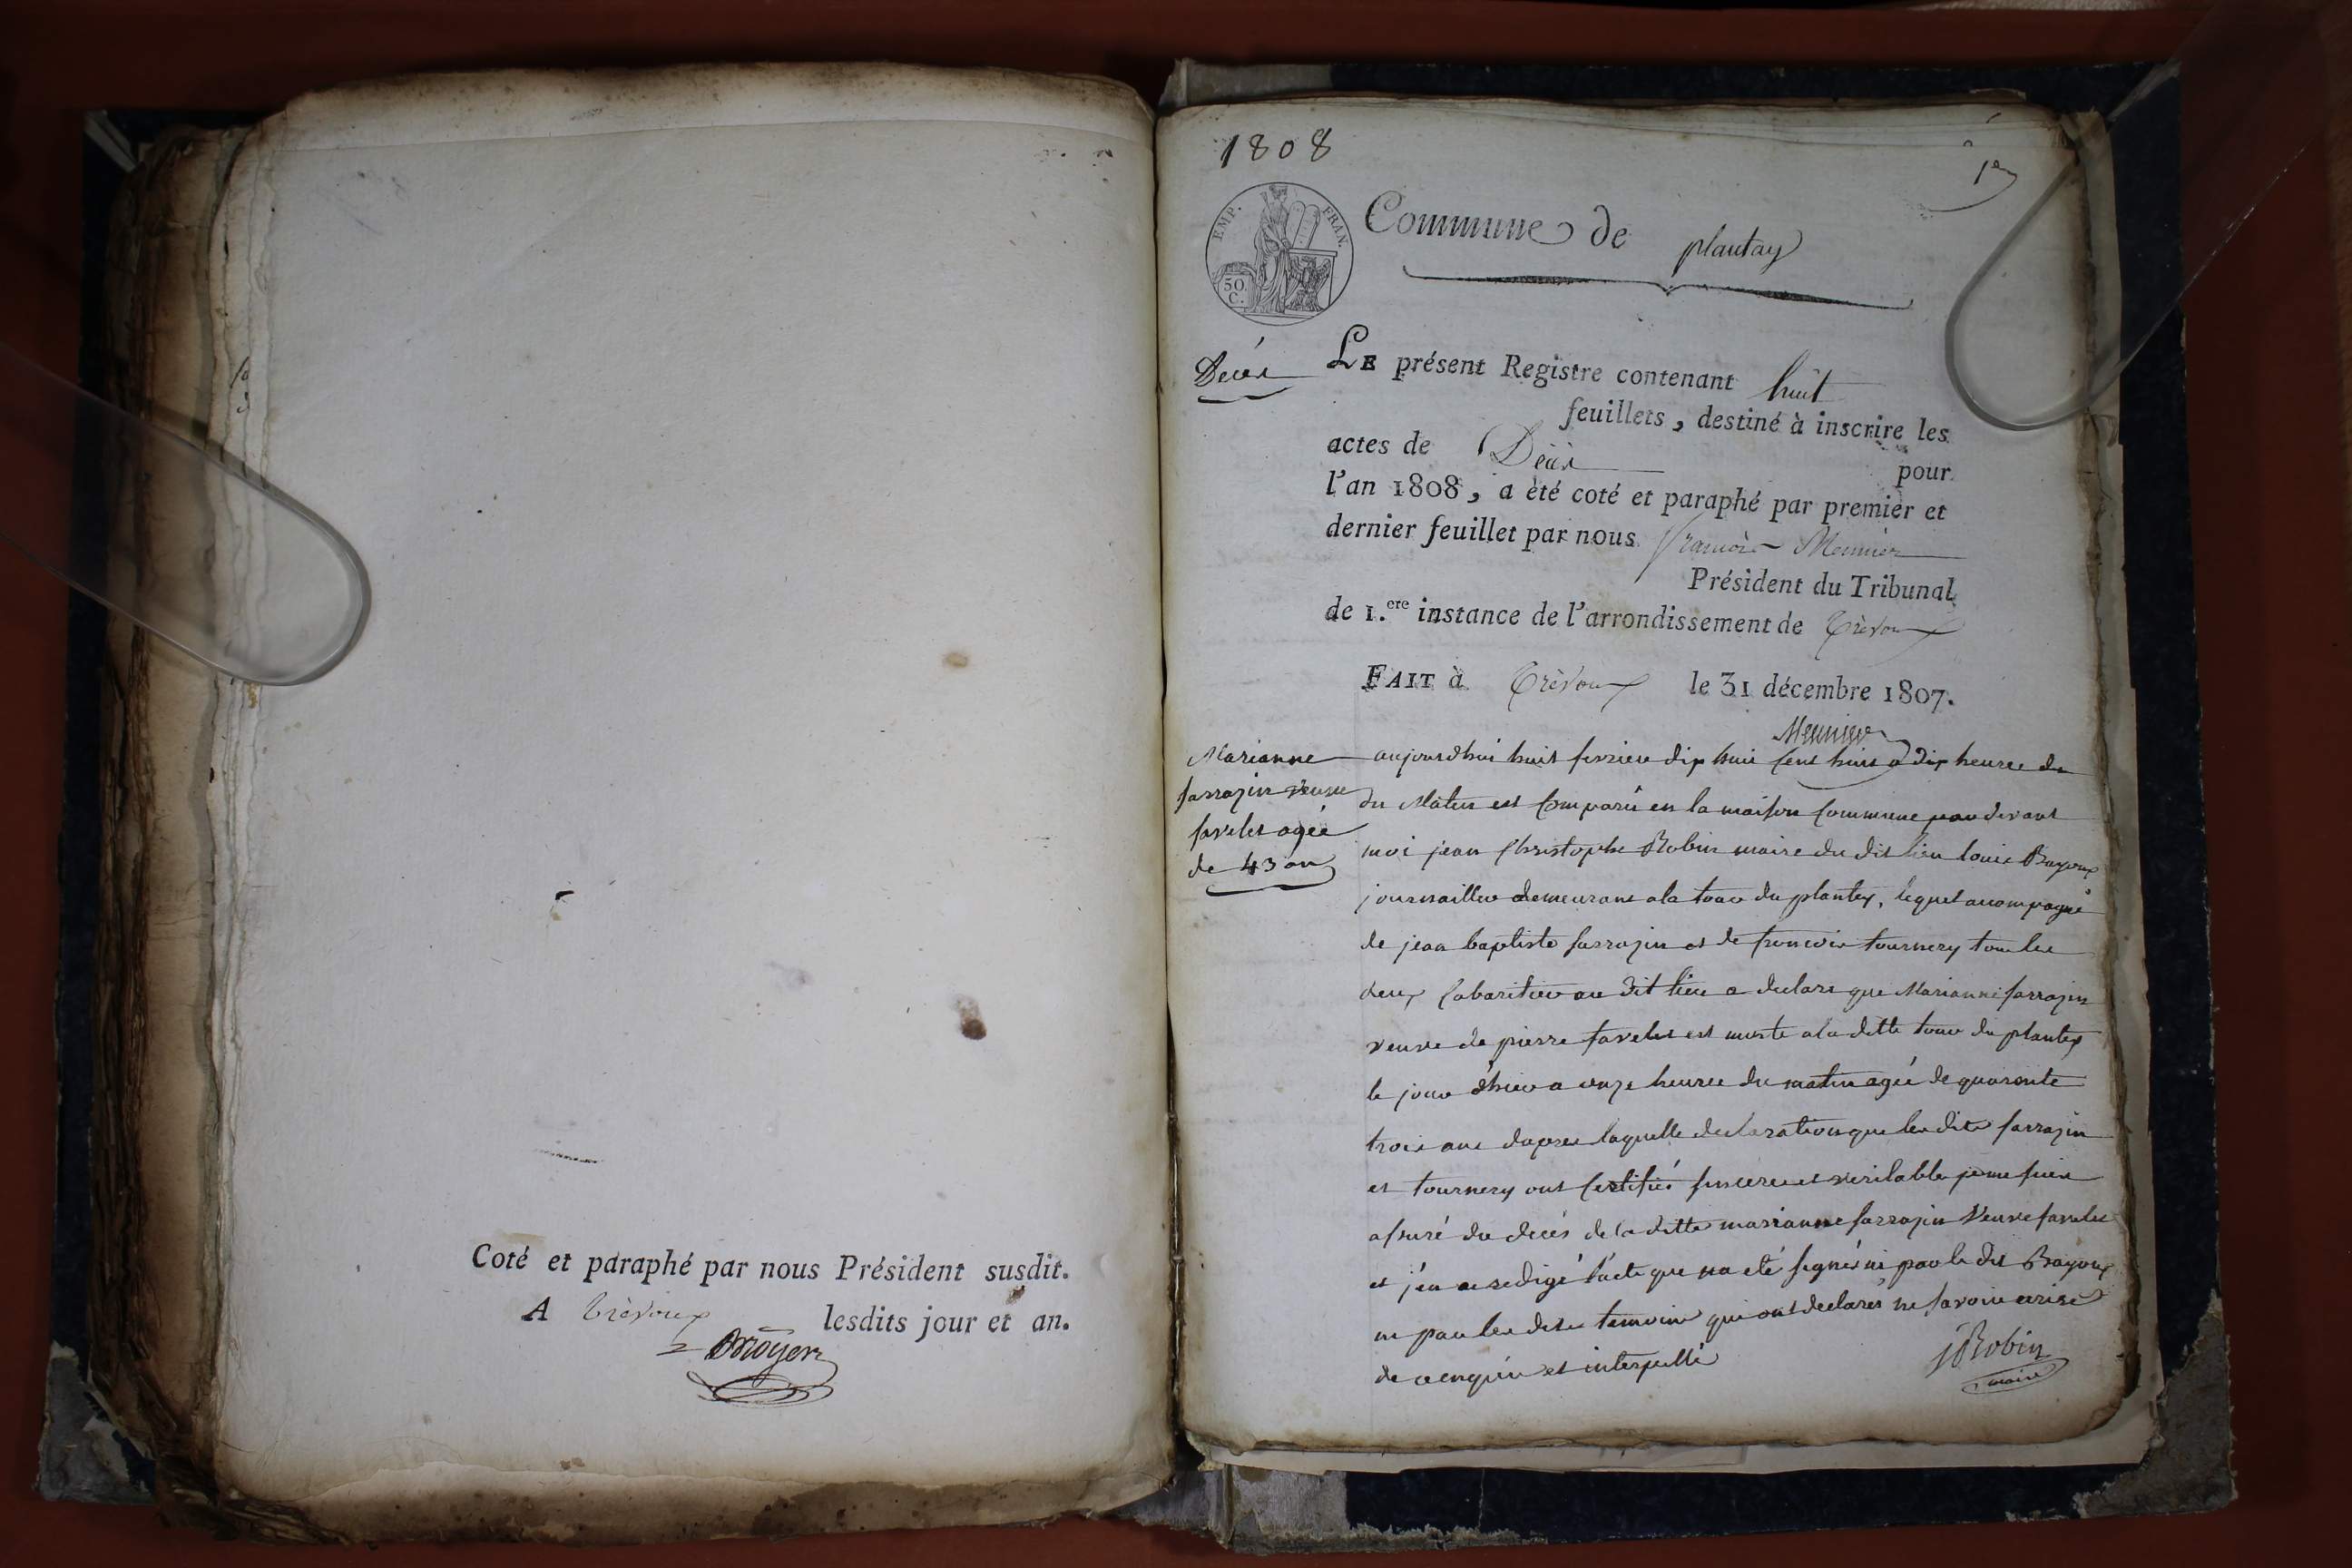 Coté et paraphé par nous Président susdit.
A Trévoux lesdits jour et an.
1808
1er
EMP. FRAN.
50.
C.
Commune de plantay
Décès
LE présent Registre contenant huit
feuillets, destiné à inscrire les
actes de Décès pour
l'an 1808, a été coté et paraphé par premier et
dernier feuillet par nous François Meunier
Président du Tribunal
de 1.ere instance de l'arrondissement de Trévoux
FAIT à Trévoux le 31 décembre 1807.
Meunier
Marianne
sarrazin veuve
favelet agée
de 43 ans
aujourdhui huit fevrier dix huit cent huit a dix heures du
du Matin est Comparu en la maison Commune pardevant
moi jean Christophe Robin maire du dit lieu louis Bayoux
journaillier demeurant a la tour du plantey, lequel accompagné
de jean baptiste sarrazin et de francois tournery tous les
deux Cabaretier au dit lieu a declare que Marianne sarrazin
veuve de pierre favelet est morte a la ditte tour du plantey
le jour d'hier a onze heures du matin agée de quarante
trois ans dapres laquelle declaration que les dits sarrazin
et tournery ont Certifié sincere et veritable je me suis
assuré du decés de la ditte marianne sarrazin Veuve favelet
et j'en ai redigé l'acte que na eté signés ni par le dit Bayoux
ni par les dits temoins qui ont declarés ne savoir
de ce enquis et interpellé
jRobin
maire